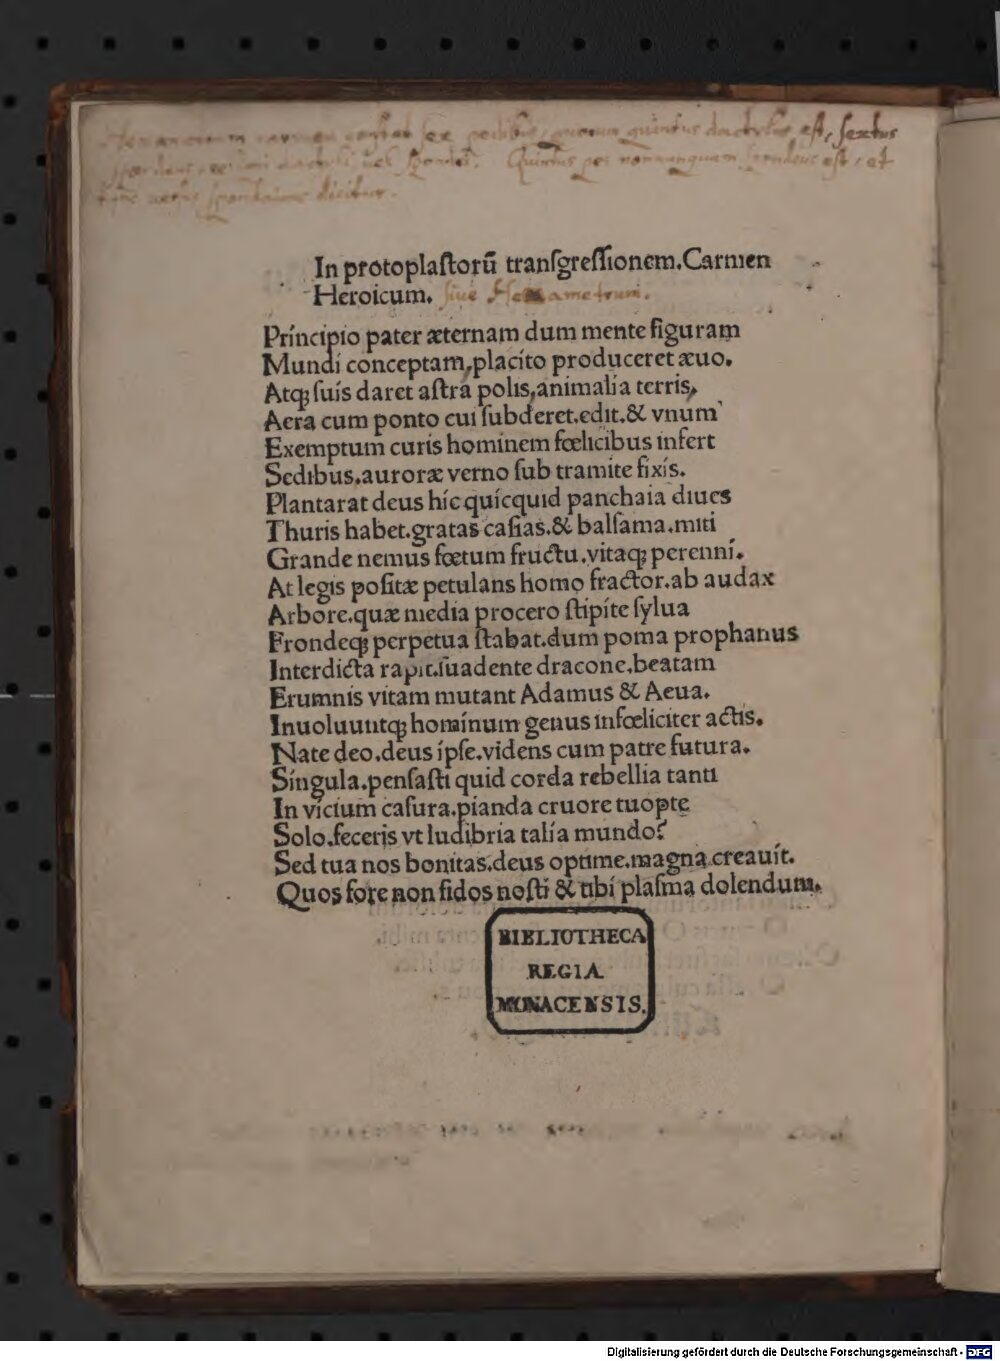 Hexametrum carmen constat sex pedibus, quorum quintus dactylus est, sextus
spondeus, reliqui dactyli vel spondei. Quintus nonnunquam spondeus est, et
tunc versus spondaicus dicitur.
In protoplaſtorū tranſgreſſionem.Carmen
Heroicum. ſiue Hexametrum.
Príncipio pater æternam dum mente figuram
Mundi conceptam,placito produceret æuo.
Atqꝫ ſuis daret aſtra polis,animalia terris,
Aera cum ponto cui ſubderet.edit.& vnum
Exemptum curis hominem fœlicibus infert
Sedibus.auroræ verno ſub tramite fixis.
Plantarat deus híc quícquid panchaia diues
Thuris habet.gratas caſias.& balſama.miti
Grande nemus fœtum fructu.vitaqꝫ perenni.
At legis poſitæ petulans homo fractor.ab audax
Arbore.quæ media procero ſtipite ſylua
Frondeqꝫ perpetua ſtabat.dum poma prophanus
Interdicta rapit.ſuadente dracone.beatam
Erumnis vitam mutant Adamus & Aeua.
Inuoluuntqꝫ homínum genus infœliciter actis.
Nate deo.deus ipſe.videns cum patre futura.
Singula.penſaſti quid corda rebellia tanti
In vicium caſura.pianda cruore tuopte
Solo.feceris vt ludibria talia mundo?
Sed tua nos bonitas.deus optime.magna creauit.
Quos fore non fidos noſti & tibi plaſma dolendum.
BIBLIOTHECA
REGIA
MONACENSIS.
Digitalisierung gefördert durch die Deutsche Forschungsgemeinschaft - DFG